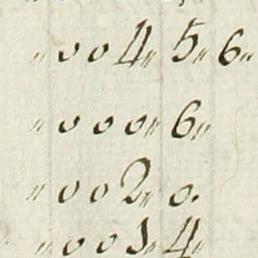 " 0 0 4 " 5 " 6 "
" 0 0 0 " 6 "
" 0 0 2 " 0 .
" 0 0 3 " 4 "